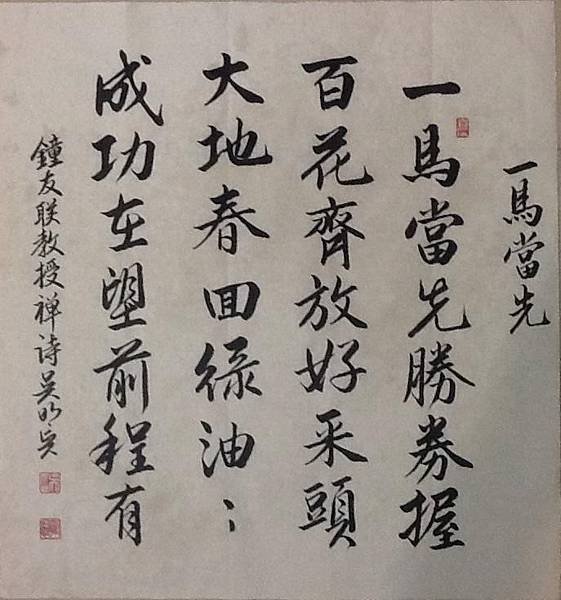 一馬當先
一馬當先勝券握
百花齊放好采頭
大地春回綠油〻
成功在望前程有
鐘友联教授禅诗吴